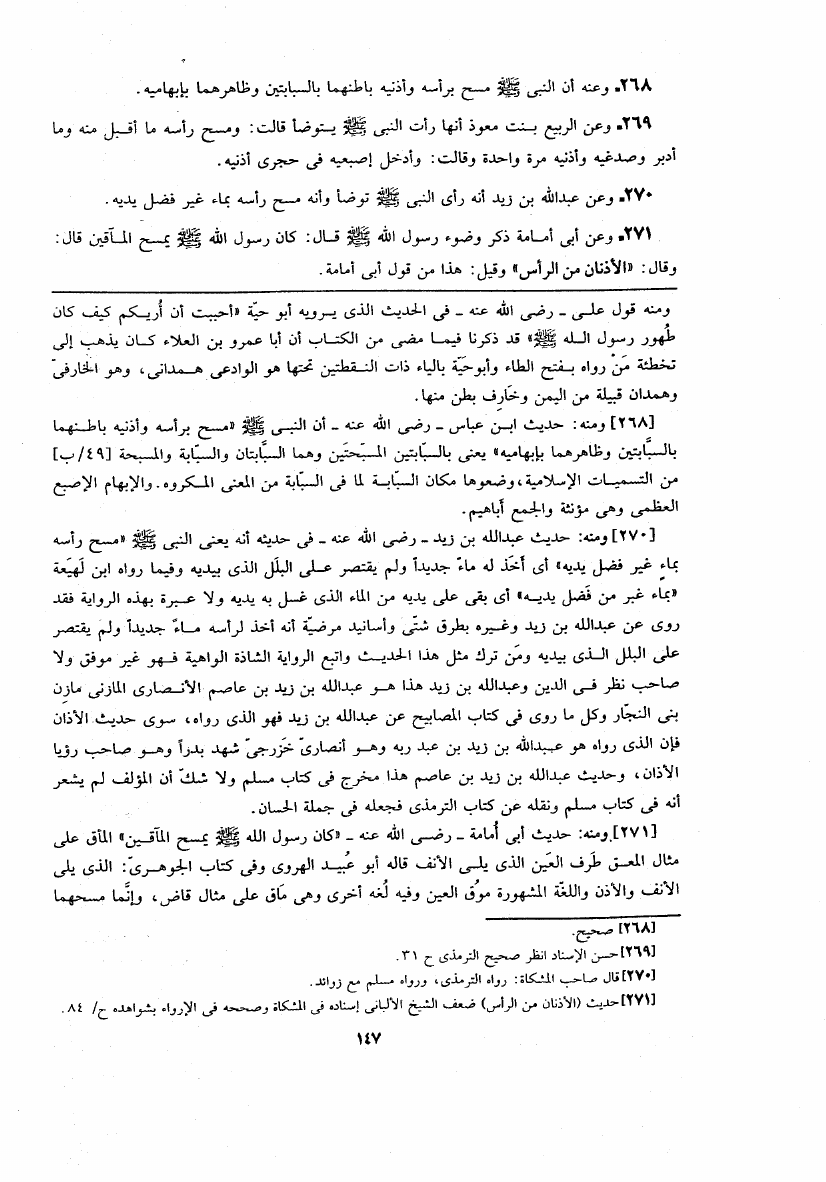 ٢٦٨ـ وعنه أن النبى ﷺ مسح برأسه وأذنيه باطنهما بالسبابتين وظاهرهما بإبهاميه.
٢٦٩ـ وعن الربيع بنت معوذ أنها رأت النبى ﷺ يتوضأ قالت: ومسح رأسه ما أقبل منه وما
أدبر وصدغيه وأذنيه مرة واحدة وقالت: وأدخل إصبعيه فى حجرى أذنيه.
٢٧٠ـ وعن عبدالله بن زيد أنه رأى النبى ﷺ توضأ وأنه مسح رأسه بماء غير فضل يديه.
٢٧١ـ وعن أبى أمامة ذكر وضوء رسول الله ﷺ قال: كان رسول الله ﷺ يمسح المآقين قال:
وقال: «الأذنان من الرأس» وقيل: هذا من قول أبى أمامة.
ومنه قول على ـ رضى الله عنه ـ فى الحديث الذى يرويه أبو حيّة «أحببت أن أُريكم كيف كان
طُهور رسول الله ﷺ» قد ذكرنا فيما مضى من الكتاب أن أبا عمرو بن العلاء كان يذهب إلى
تخطئة مَنْ رواه بفتح الطاء وأبوحيَّة بالياء ذات النقطتين تحتها هو الوادعى همدانى، وهو الخارفىّ
وهمدان قبيلة من اليمن وخَارِف بطن منها.
[٢٦٨] ومنه: حديث ابن عباس ـ رضى الله عنه ـ أن النبى ﷺ «مسح برأسه وأذنيه باطنهما
بالسبَّابتين وظاهرهما بإبهاميه» يعنى بالسبّابتين المسبّحتَين وهما السبَّابتان والسبّابة والمسبحة [٤٩/ب]
من التسميات الإسلامية، وضعوها مكان السبّابة لما فى السبّابة من المعنى المكروه. والإبهام الإصبع
العظمى وهى مؤنثة والجمع أَباهيم.
[٢٧٠] ومنه: حديث عبدالله بن زيد ـ رضى الله عنه ـ فى حديثه أنه يعنى النبى ﷺ «مسح رأسه
بماءٍ غير فضل يديه» أى أَخَذ له ماءً جديداً ولم يقتصر على البلَل الذى بيديه وفيما رواه ابن لَهيَعة
«بماء غبر من فَضل يديه» أى بقى على يديه من الماء الذى غسل به يديه ولا عبرة بهذه الرواية فقد
روى عن عبدالله بن زيد وغيره بطرق شتّى وأسانيد مرضيّة أنه أخذ لرأسه ماءً جديداً ولم يقتصر
على البلل الذى بيديه ومَن ترك مثل هذا الحديث واتبع الرواية الشاذة الواهية فهو غير موفق ولا
صاحب نظر فى الدين وعبدالله بن زيد هذا هو عبدالله بن زيد بن عاصم الأنصارى المازنى مازِن
بنى النجّار وكل ما روى فى كتاب المصابيح عن عبدالله بن زيد فهو الذى رواه، سوى حديث الأذان
فإن الذى رواه هو عبدالله بن زيد بن عبد ربه وهو أنصارىّ خَزرجىّ شهد بدراً وهو صاحب رؤيا
الأذان، وحديث عبدالله بن زيد بن عاصم هذا مخرج فى كتاب مسلم ولا شكّ أن المؤلف لم يشعر
أنه فى كتاب مسلم ونقله عن كتاب الترمذى فجعله فى جملة الحسان.
[٢٧١] ومنه: حديث أبى أُمامة ـ رضى الله عنه ـ «كان رسول الله ﷺ يمسح المآقين» المأق على
مثال المعق طَرف العَين الذى يلى الأنف قاله أبو عُبيد الهروى وفى كتاب الجوهرىّ: الذى يلى
الأنف والأذن واللغّة المشهورة موُق العين وفيه لُغه أخرى وهى مَاق على مثال قاض، وإنَّما مسحهما
[٢٦٨] صحيح.
[٢٦٩] حسن الإسناد انظر صحيح الترمذى ح ٣١.
[٢٧٠] قال صاحب المشكاة: رواه الترمذى، ورواه مسلم مع زوائد.
[٢٧١] حديث (الأذنان من الرأس) ضعف الشيخ الألبانى إسناده فى المشكاة وصححه فى الإرواء بشواهده ح/ ٨٤.
١٤٧